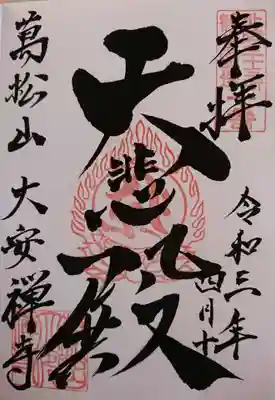 奉拝
令和三年
四月十
大悲殿
萬松山 大安禪寺